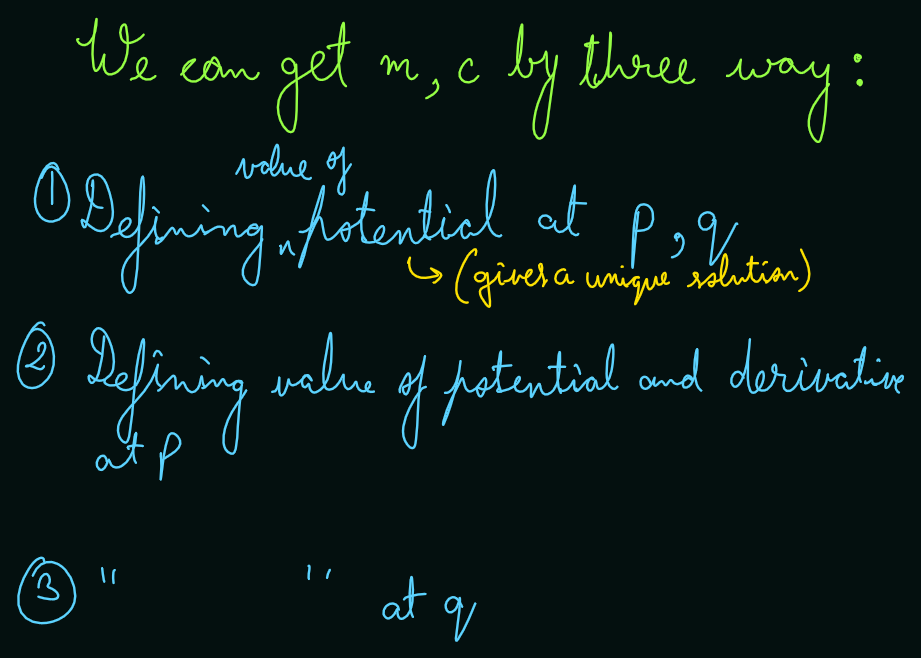 We can get m, c by three way:
value of
① Defining potential at p, q
↳ (gives a unique solution)
② Defining value of potential and derivative
at p
③ " " at q